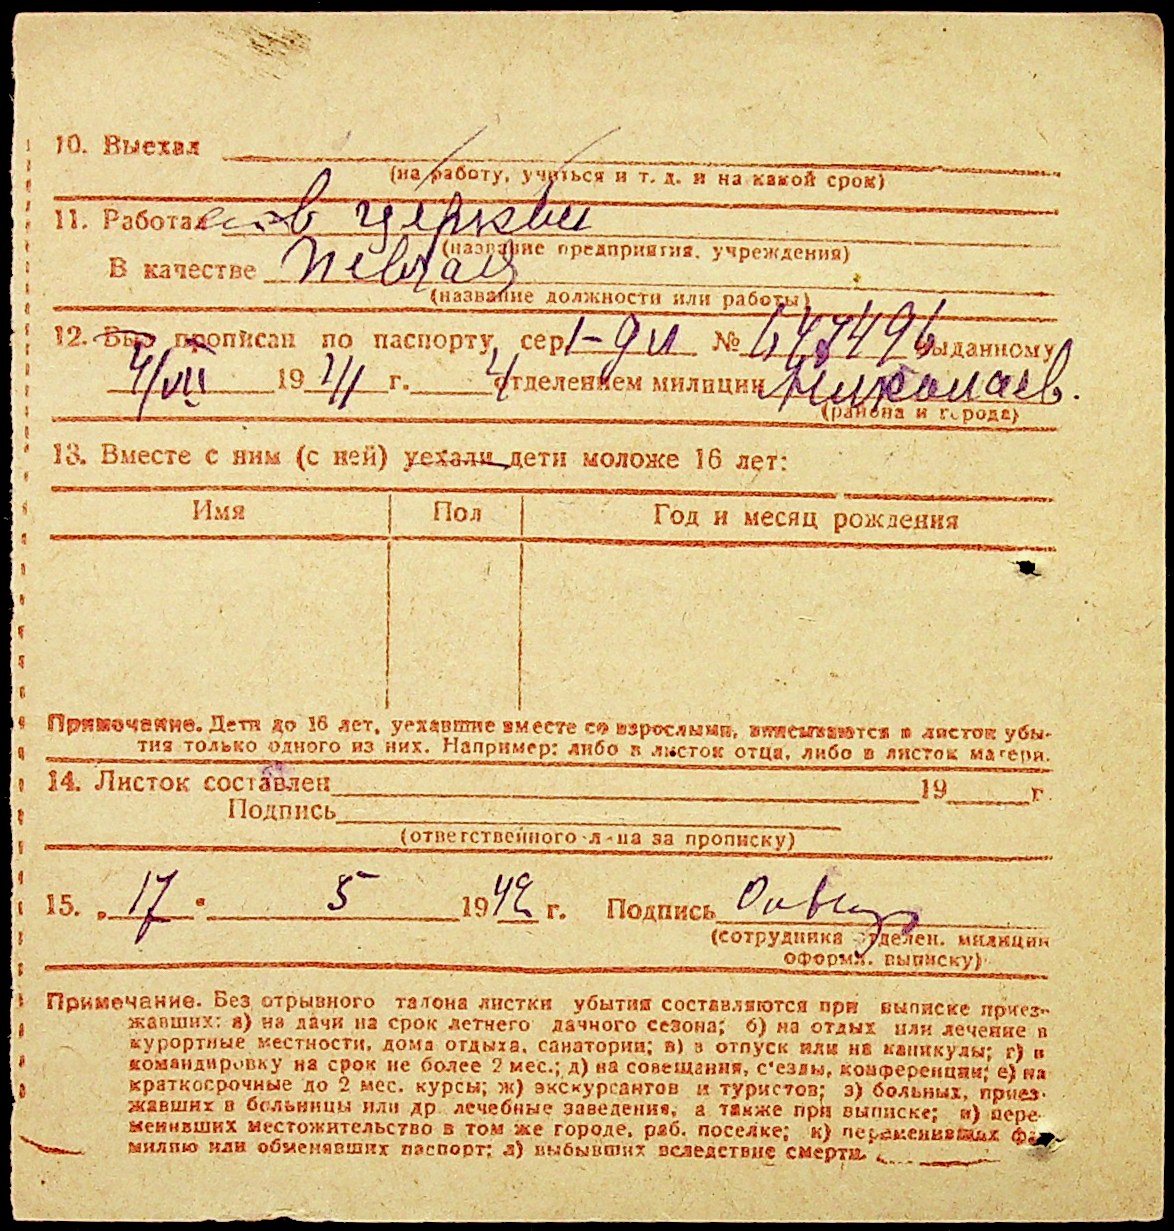 10. Выехал
(на работу, учиться и т. д. и на какой срок)
11. Работал в церкви
(название предприятия, учреждения)
В качестве певчая
(название должности или работы)
12. Был прописан по паспорту сер. № выданному
4/VII 19 41 г. 4 отделением милиции Николаев.
(района и города)
13. Вместе с ним (с ней) уехали дети моложе 16 лет:
Имя Пол Год и месяц рождения
Примечание. Дети до 16 лет, уехавшие вместе со взрослыми, вписываются в листок убы-
тия только одного из них. Например: либо в листок отца, либо в листок матери.
14. Листок составлен 19 г.
Подпись
(ответственного л-ца за прописку)
15. „17" 5 1942 г. Подпись
(сотрудника отделен. милиции
оформ. выписку)
Примечание. Без отрывного талона листки убытия составляются при выписке приез-
жавших: а) на дачи на срок летнего дачного сезона; б) на отдых или лечение в
курортные местности, дома отдыха, санатории; в) в отпуск или на каникулы; г) в
командировку на срок не более 2 мес.; д) на совещания, с'езды, конференции; е) на
краткосрочные до 2 мес. курсы; ж) экскурсантов и туристов; з) больных, приез-
жавших в больницы или др. лечебные заведения, а также при выписке; и) пере-
менивших местожительство в том же городе, раб. поселке; к) переменивших фа-
милию или обменявших паспорт; л) выбывших вследствие смерти.